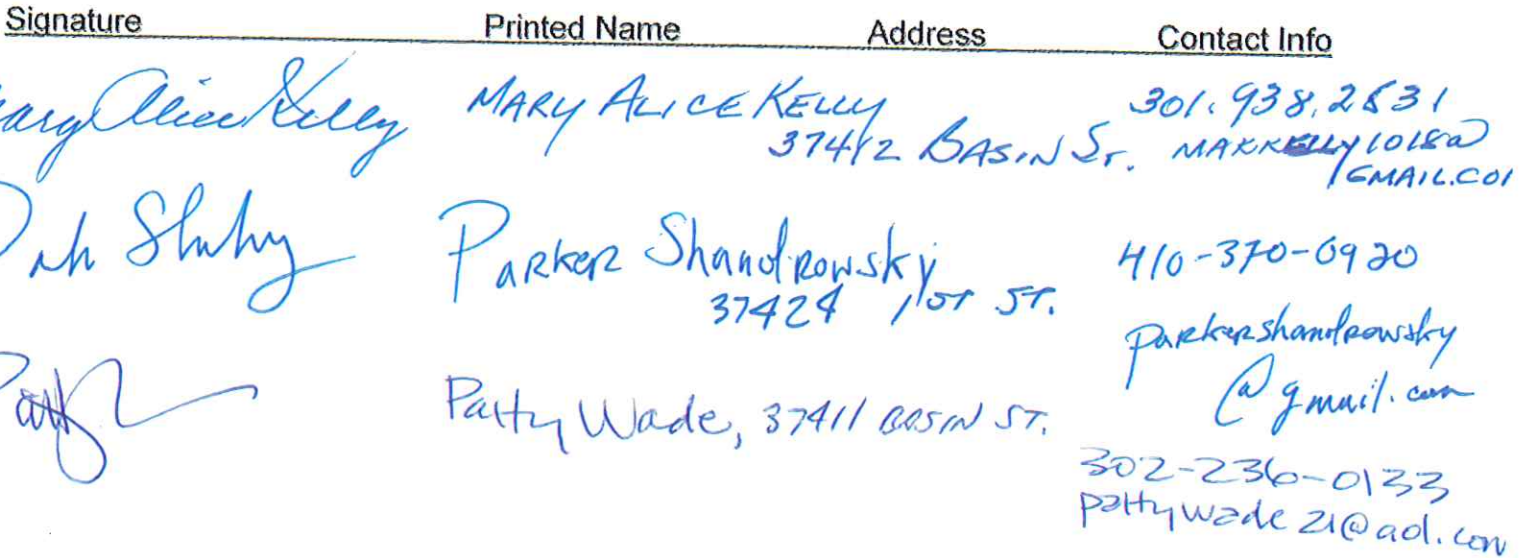 Signature Printed Name Address Contact Info
Mary Alice Kelly MARY ALICE KELLY 301.938.2831
37412 BASIN ST. MAKKELLY1018@
GMAIL.CO
Parker Shandrowsky 410-370-0920
37424 1ST ST.
parkershandrowsky
@gmail.com
Patty Wade, 37411 BASIN ST.
302-236-0133
pattywade21@aol.com